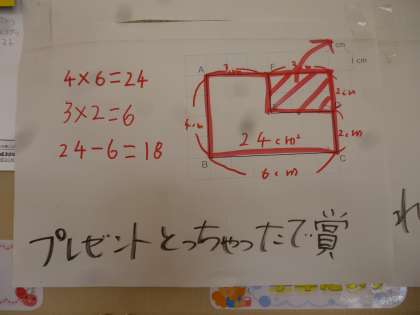 4×6=24
3×2=6
24-6=18
A
3cm
F
cm
1cm
2cm
4cm
24cm²
2cm
B
C
6cm
プレゼントとっちゃったで賞
れ